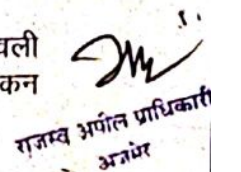 वली
कन
राजस्व अपील प्राधिकारी
अजमेर